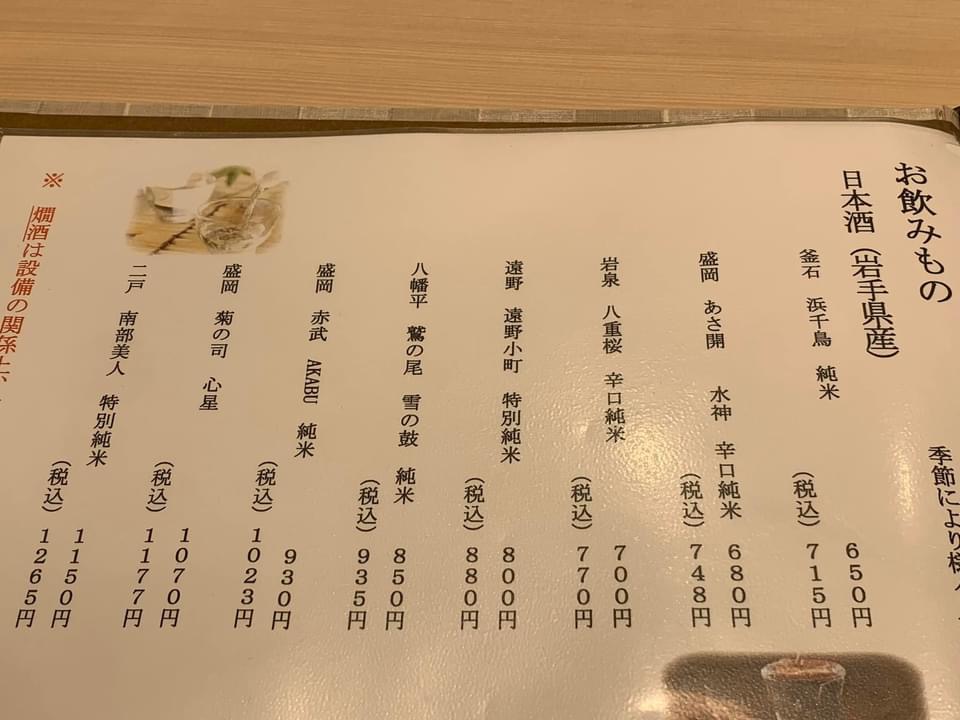 お飲みもの
季節により様
日本酒（岩手県産）
釜石　浜千鳥　純米　650円
（税込）715円
盛岡　あさ開　水神　辛口純米　680円
（税込）748円
岩泉　八重桜　辛口純米　700円
（税込）770円
遠野　遠野小町　特別純米　800円
（税込）880円
八幡平　鷲の尾　雪の鼓　純米　850円
（税込）935円
盛岡　赤武　AKABU　純米　930円
（税込）1023円
盛岡　菊の司　心星　1070円
（税込）1177円
二戸　南部美人　特別純米　1150円
（税込）1265円
※　燗酒は設備の関係上、